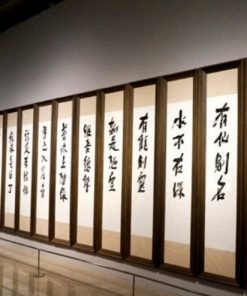 有仙則名
水不在深
有龍則靈
斯是陋室
惟吾德馨
苔痕上階綠
草色入簾青
談笑有鴻儒